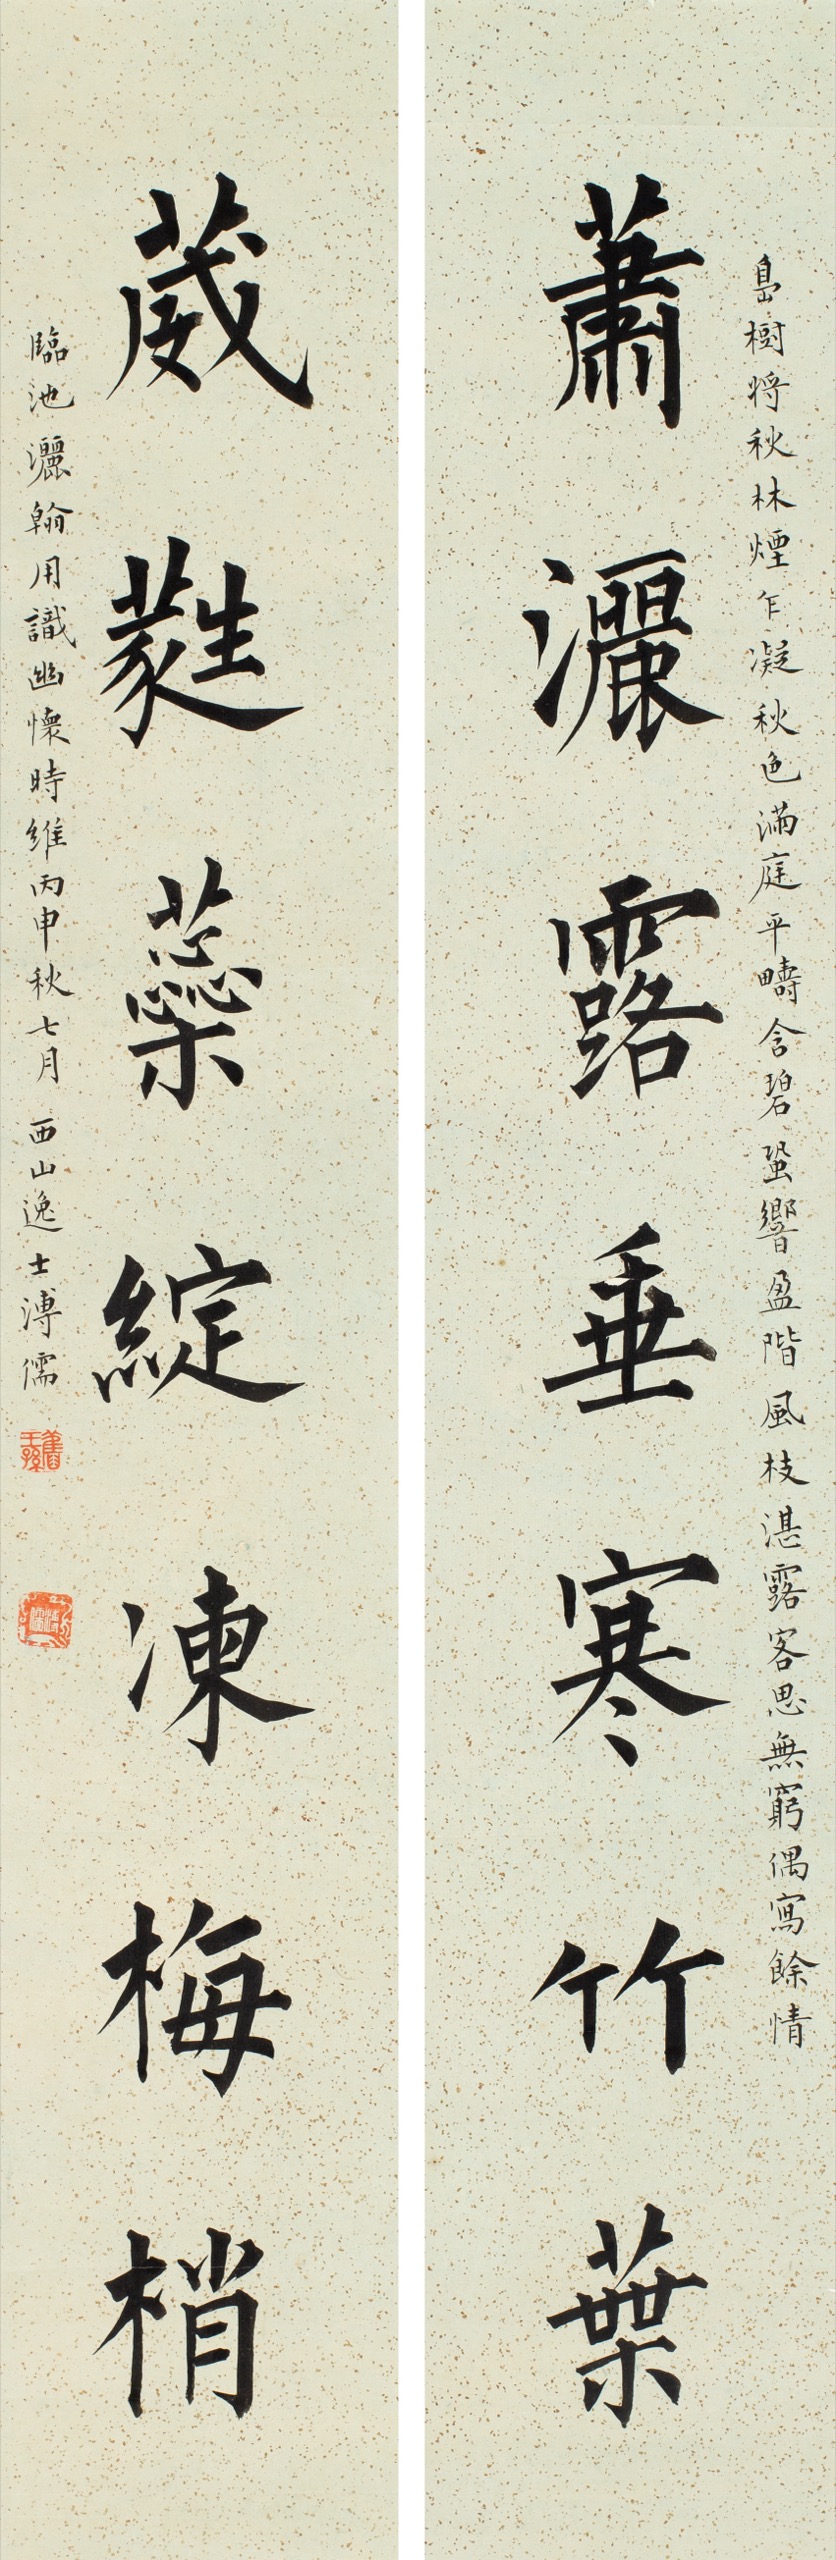 島樹将秋林煙乍凝秋色滿庭平疇含碧蛩響盈階風枝湛露客思無窮偶寫餘情
蕭灑露垂寒竹葉
葳蕤蘂綻凍梅梢
臨池灑翰用識幽懷時維丙申秋七月 西山逸士溥儒
舊王孫
溥儒